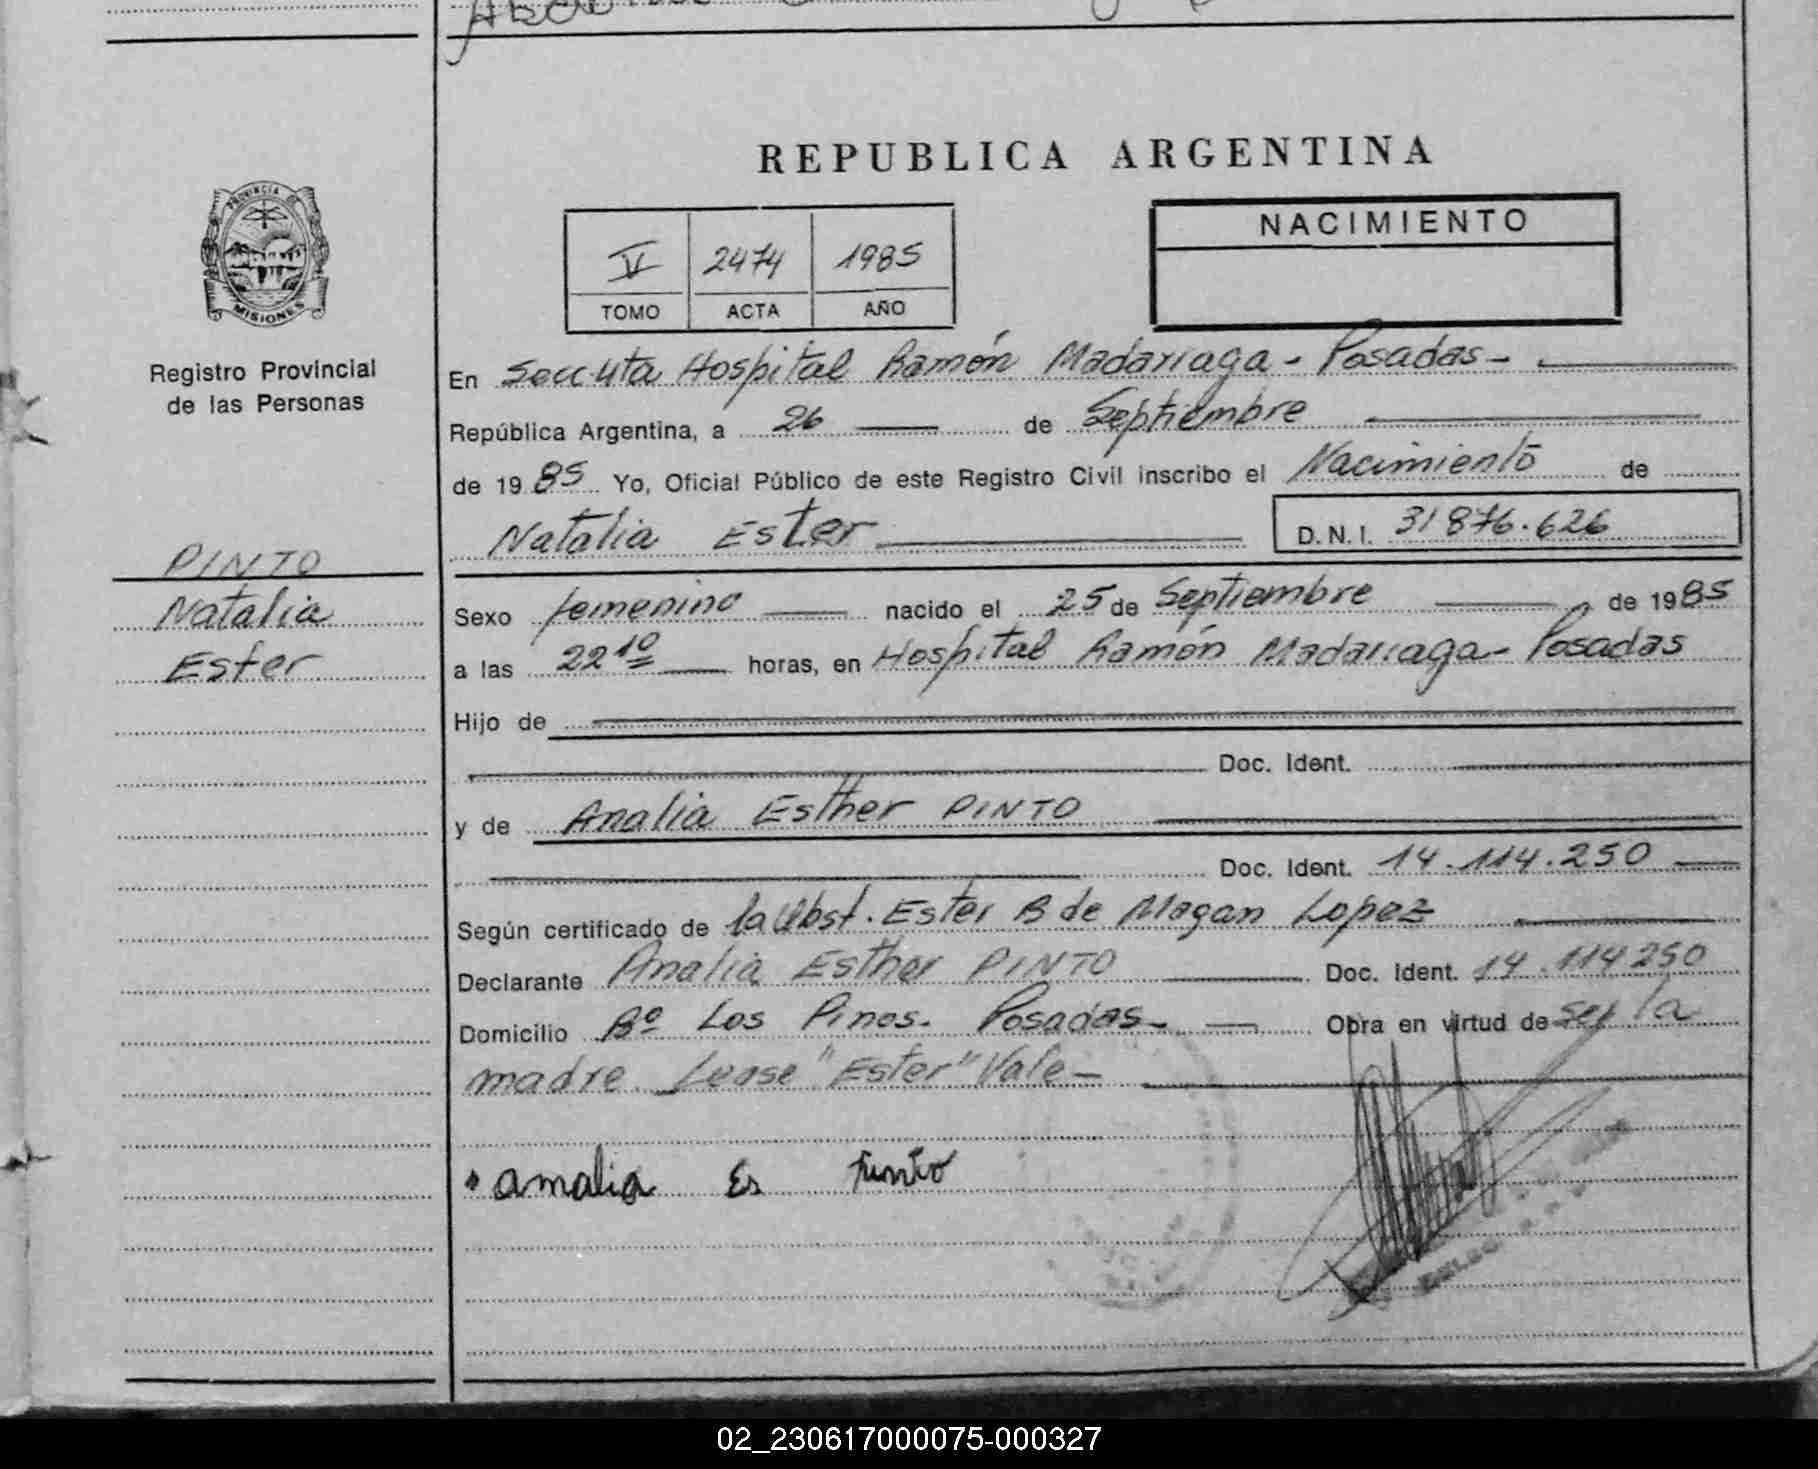 REPUBLICA ARGENTINA
PROVINCIA DE
MISIONES
Registro Provincial
de las Personas
V 2474 1985
TOMO ACTA AÑO
NACIMIENTO
En Secc uta Hospital Ramón Madariaga - Posadas -
República Argentina, a 26 de Septiembre
de 1985 Yo, Oficial Público de este Registro Civil inscribo el Nacimiento de
Natalia Ester D.N.I. 31876.626
PINTO
Natalia
Ester
Sexo femenino nacido el 25 de Septiembre de 1985
a las 22 10 horas, en Hospital Ramón Madariaga - Posadas
Hijo de
Doc. Ident.
y de Analia Esther PINTO
Doc. Ident. 14.114.250
Según certificado de la Obst. Ester B de Magan Lopez
Declarante Analia Esther PINTO Doc. Ident. 14.114250
Domicilio Bº Los Pinos. Posadas - Obra en virtud de ser la
madre Lease "Ester" Vale -
amalia Es Pinto
02_230617000075-000327